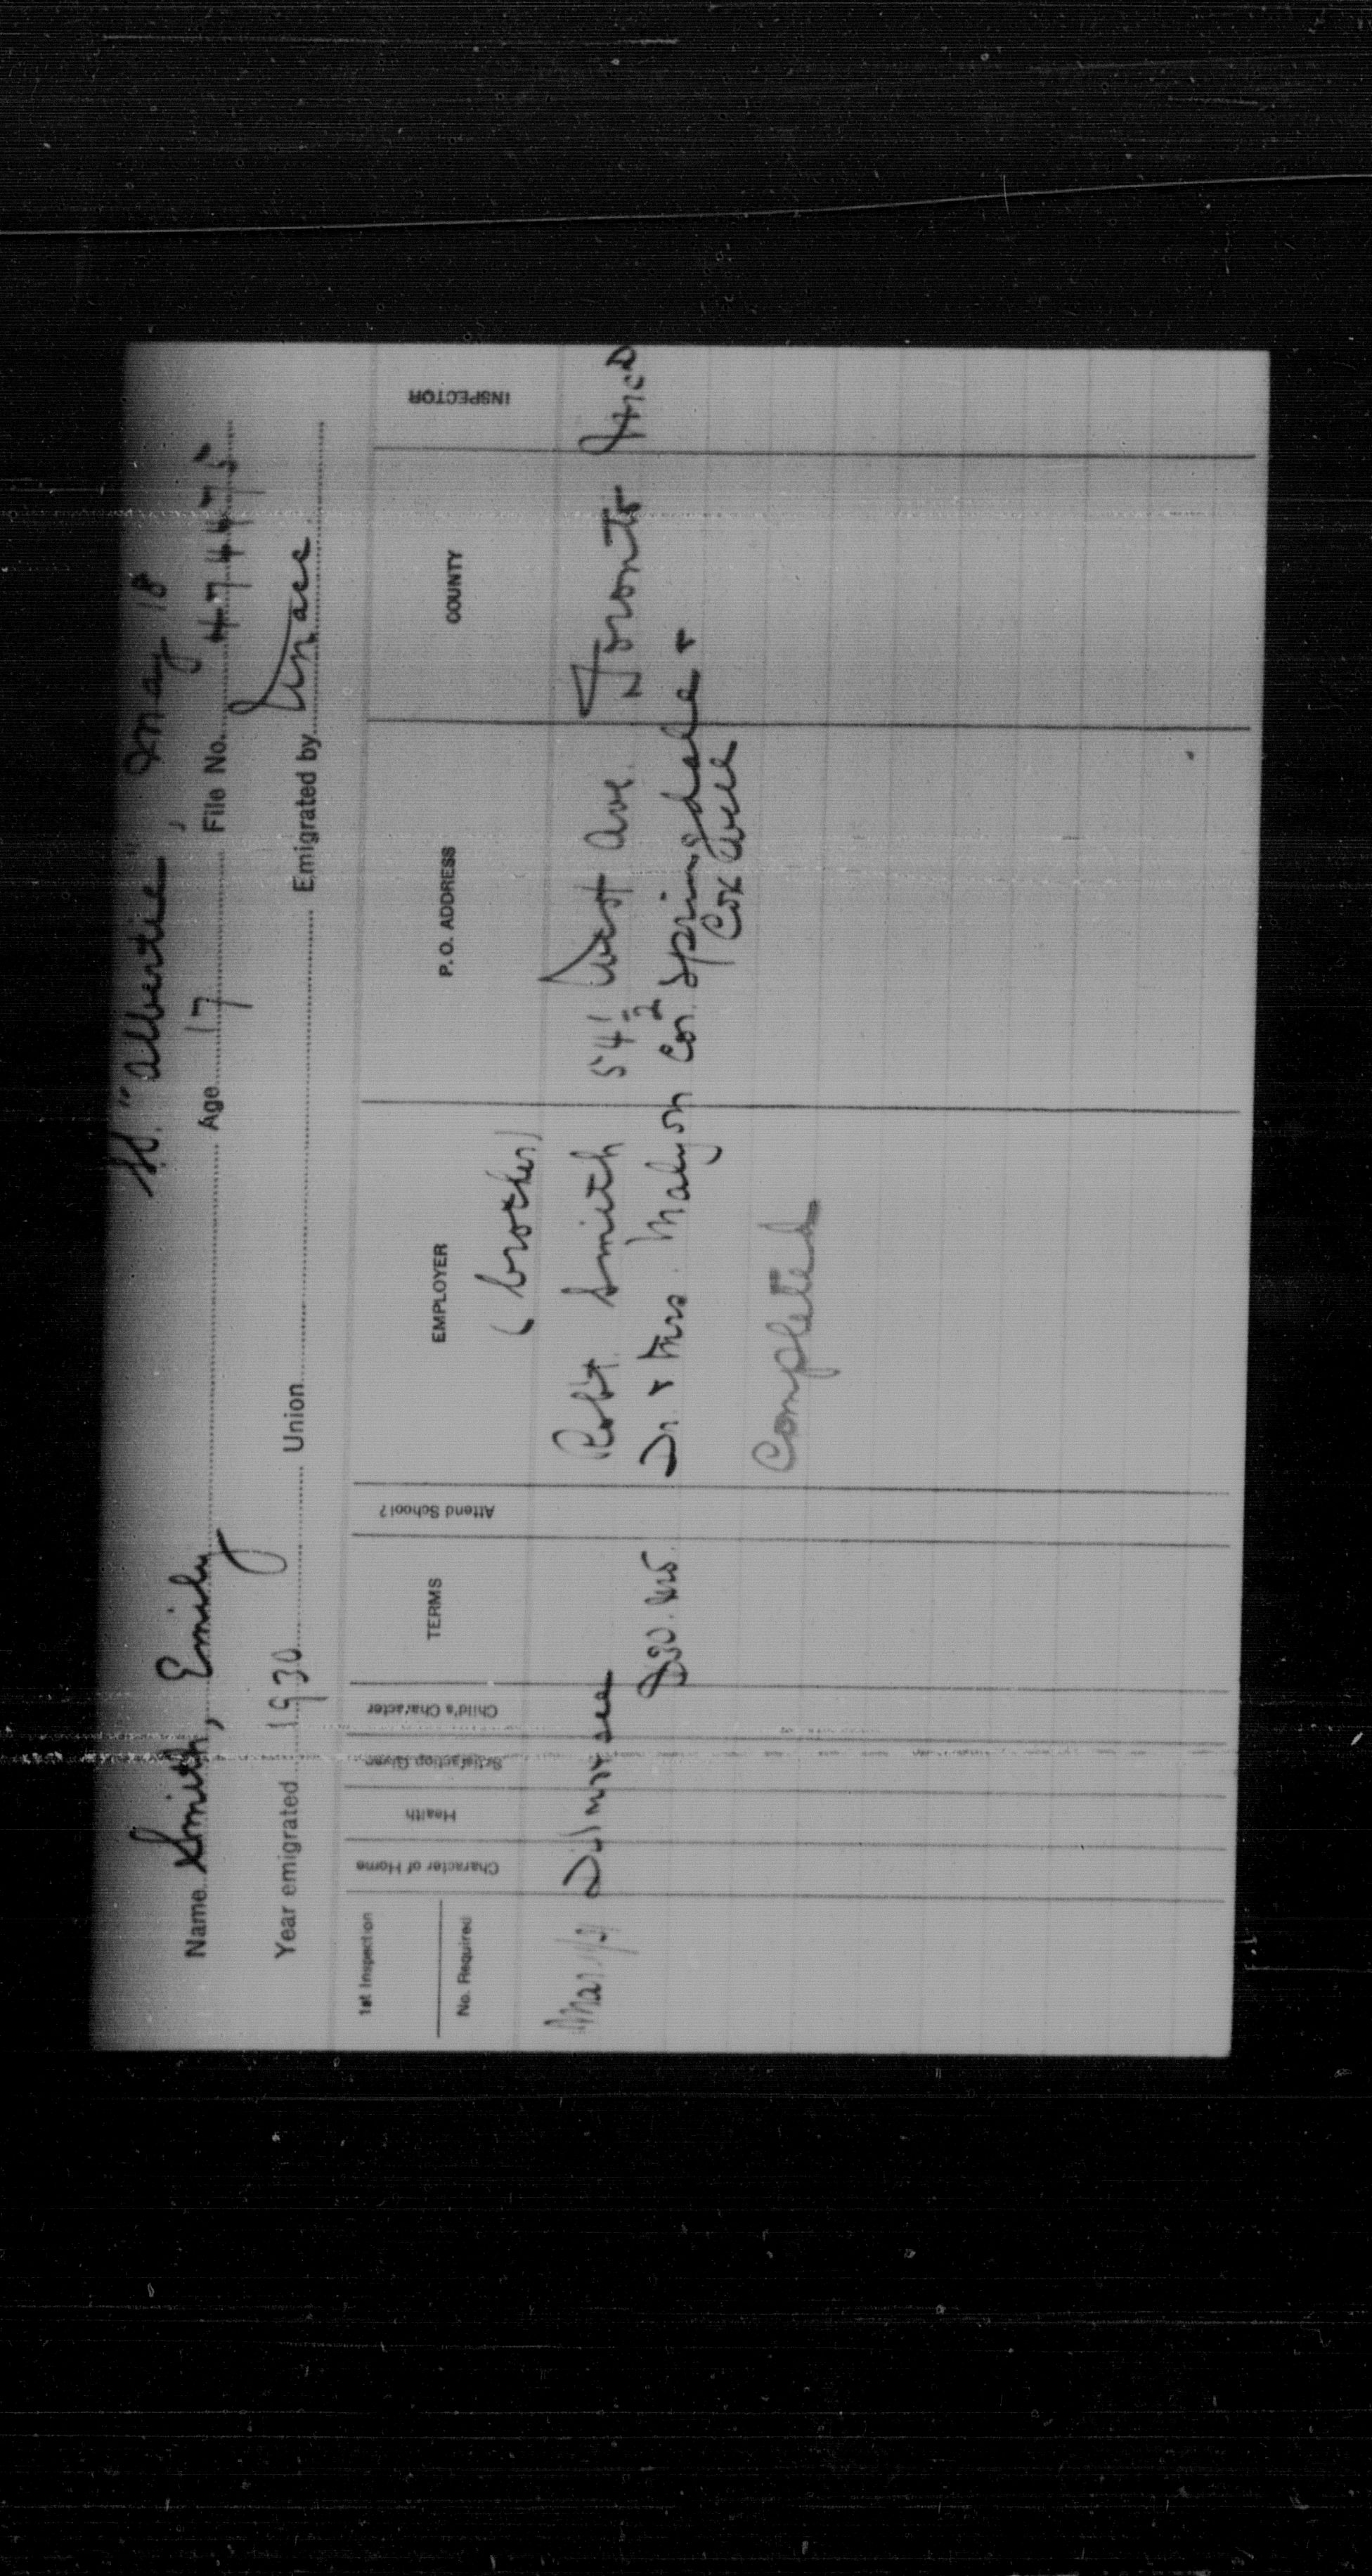 SS. "Albertic", May 18
Name Smith, Emily Age 17 File No. 474475
Year emigrated 1930 Union Emigrated by
1st Inspection
No. Required
Character of Home
Health
Satisfaction Given
Child's Character
TERMS
Attend School?
EMPLOYER
P. O. ADDRESS
COUNTY
INSPECTOR
(brother)
Mar Did not see Robt Smith 54½ West Ave. Toronto
Dr. & Mrs. Malyon Cor. Springdale &
Coxwell
Completed